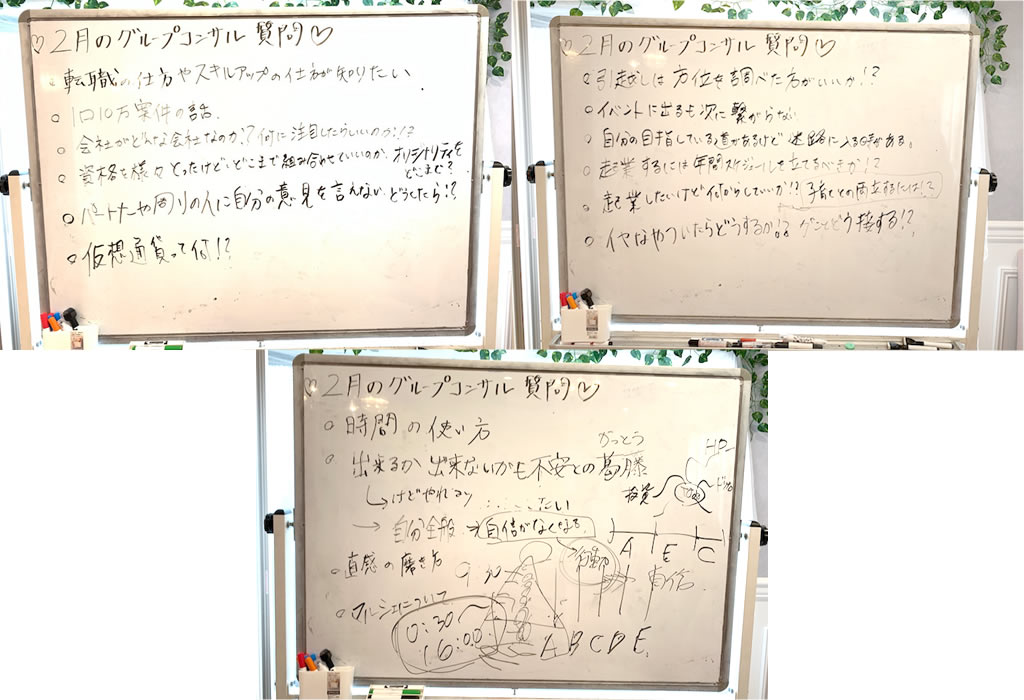 ♡２月のグループコンサル 質問♡
○ 転職の仕方やスキルアップの仕方が知りたい
○ 1口10万案件の話.
○ 会社がどんな会社なのか？何に注目したらいいのか!?
○ 資格を様々とったけど、どこまで組み合わせていいのか、オリジナリティを
どこまで？
○ パートナーや周りの人に自分の意見を言えない どうしたら!?
○ 仮想通貨って何!?
♡２月のグループコンサル 質問♡
○ 引越しは方位を調べた方がいいか!?
○ イベントに出るも次に繋がらない
○ 自分の目指している道があるけど 迷路に入る時がある。
○ 起業するには年間スケジュールを立てるべきか!?
○ 起業したいけど何からしていいか!? 子育てとの両立するには!?
○ イヤなやつ いたらどうするか!?
♡２月のグループコンサル 質問♡
○ 時間の使い方
がっとう
○ 出来るか 出来ないかも不安との葛藤
HP
投資
けどやれる
たい
→ 自分全般 → 自信がなくなる
A E C
○ 直感の磨き方
行動
自信
○ マルシェについて
16:00
A B C D E